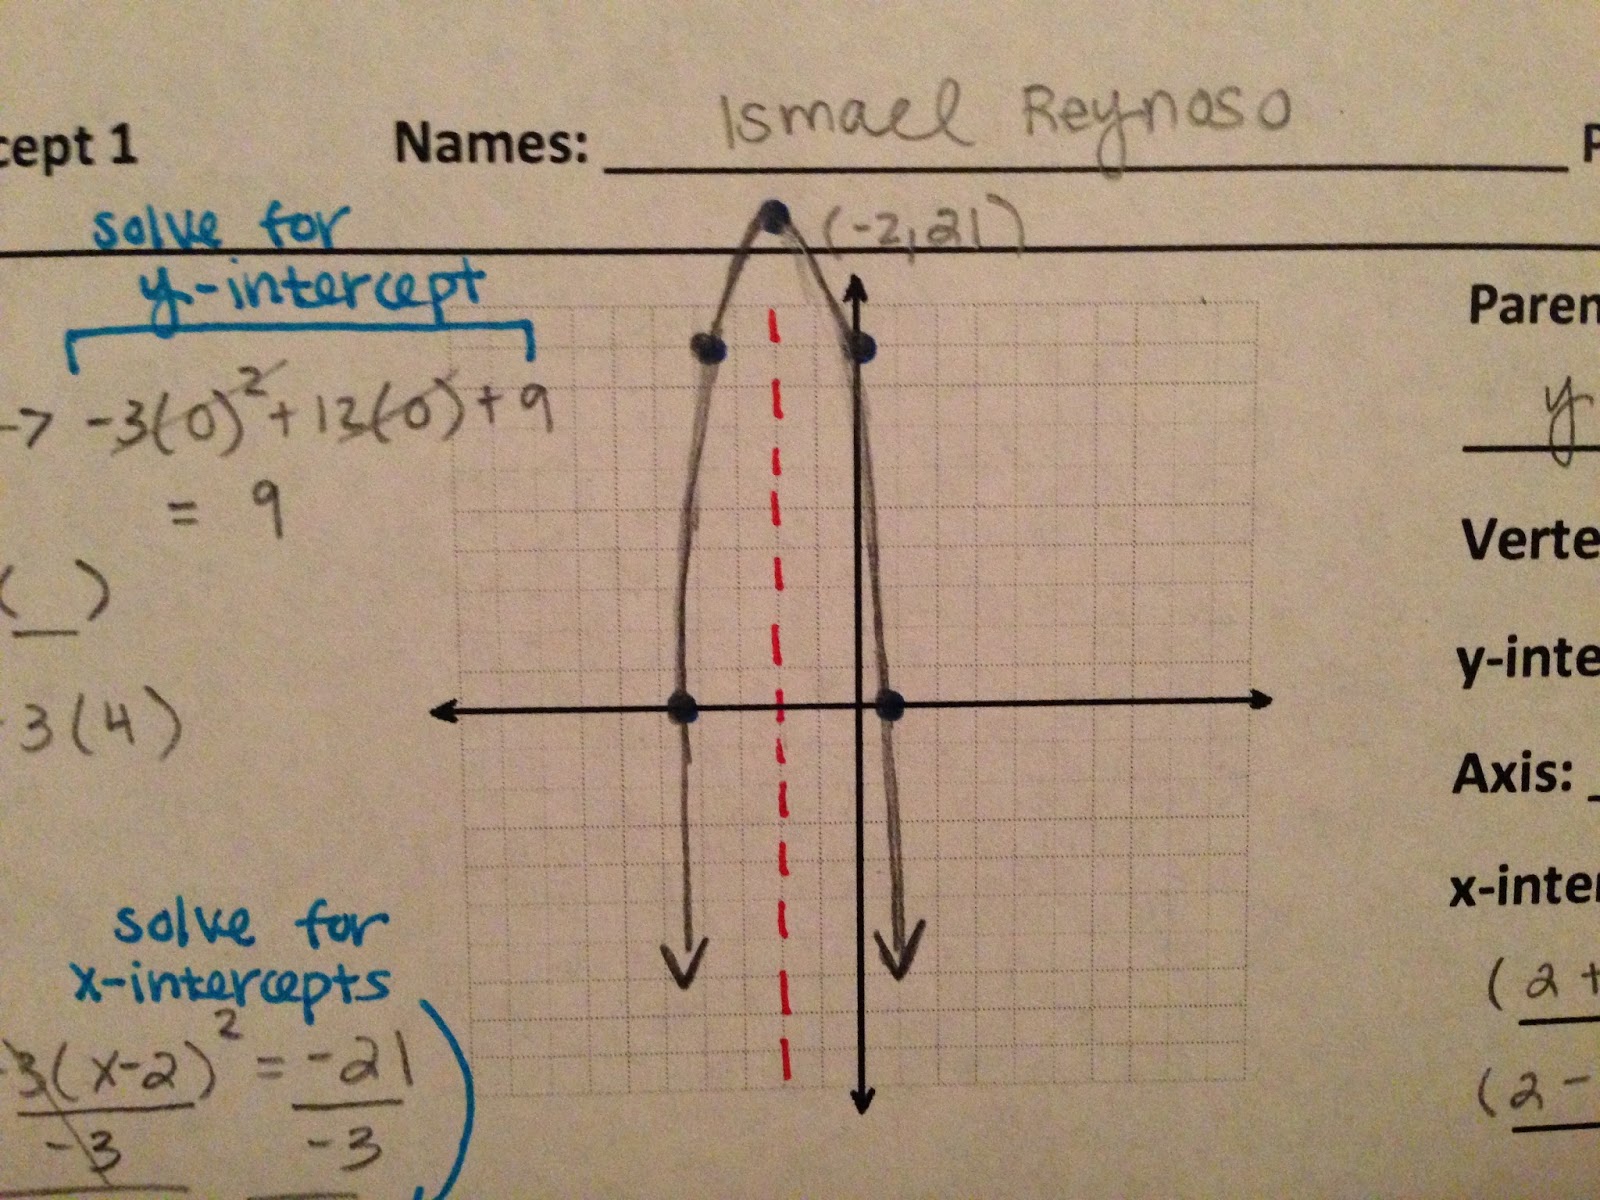 cept 1
Names: Ismael Reynoso
P
solve for
y-intercept
(-2,21)
-> -3(0)²+12(0)+9
= 9
( _ )
3(4)
solve for
x-intercepts
-3(x-2)² = -21
-3 -3
Paren
y
Verte
y-inte
Axis:
x-inter
(2+
(2-